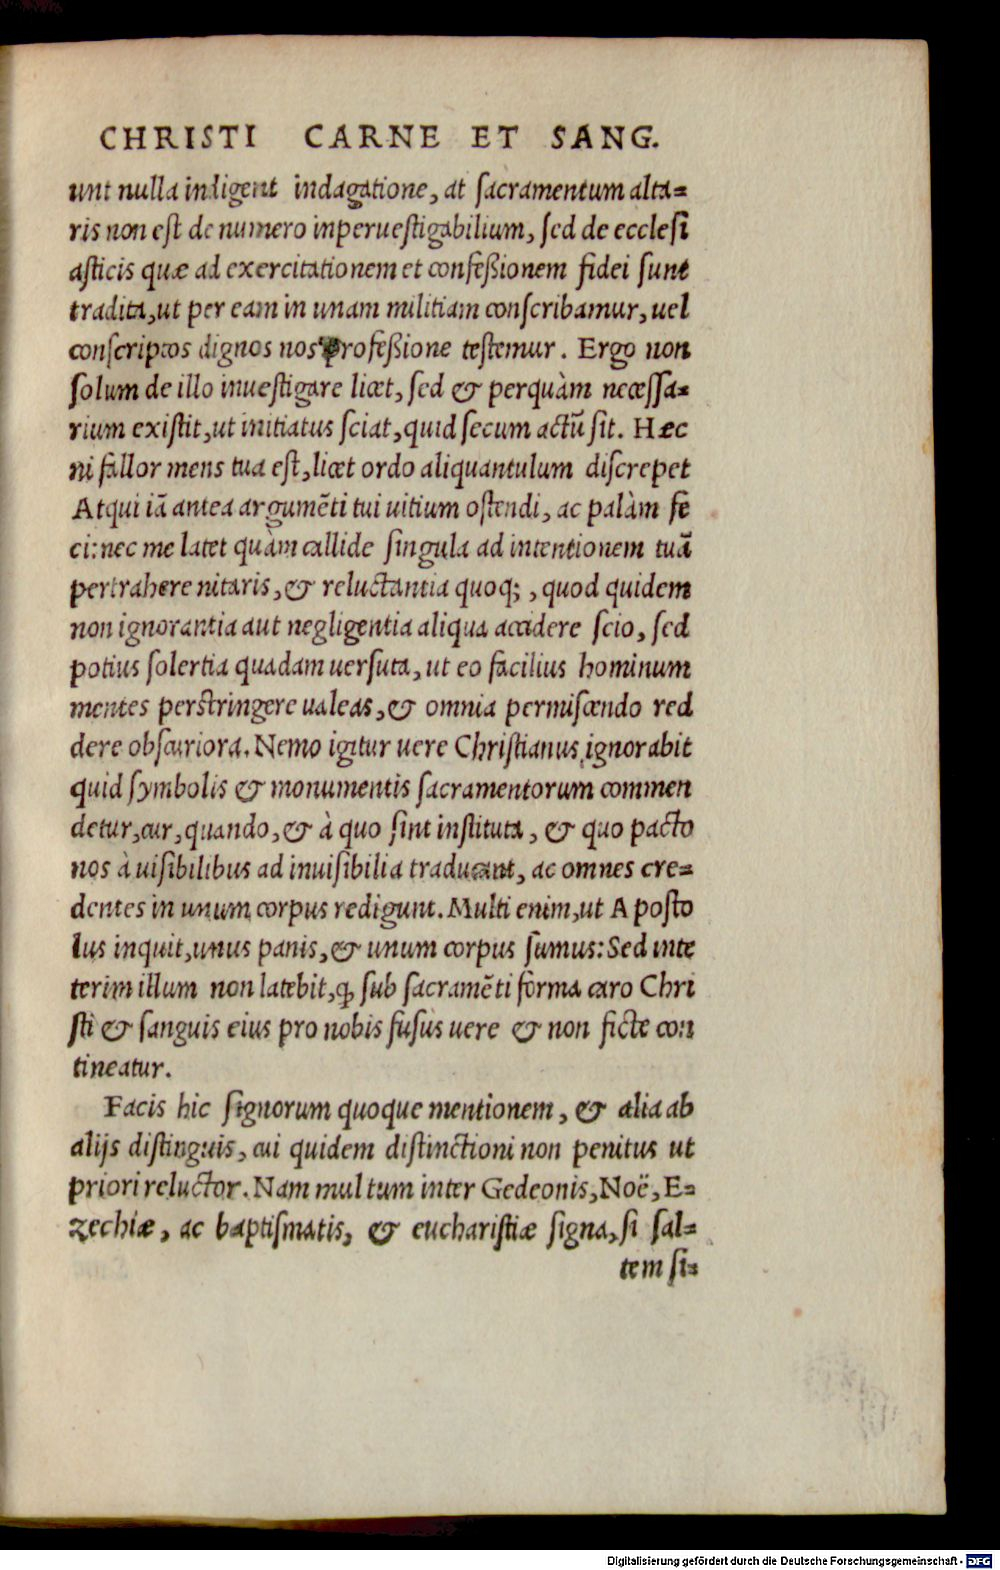 CHRISTI CARNE ET SANG.
unt nulla indigent indagatione, at ſacramentum alta=
ris non eſt de numero inperueſtigabilium, ſed de eccleſi
aſticis quæ ad exercitationem et confeßionem fidei ſunt
tradita, ut per eam in unam militiam conſcribamur, uel
conſcriptos dignos nos profeßione teſtemur. Ergo non
ſolum de illo inueſtigare licet, ſed & perquàm neceſſa=
rium exiſtit, ut initiatus ſciat, quid ſecum actũ ſit. Hæc
ni fallor mens tua eſt, licet ordo aliquantulum diſcrepet
Atqui iã antea argumẽti tui uitium oſtendi, ac palàm fe
ci: nec me latet quàm callide ſingula ad intentionem tuã
pertrahere nitaris, & reluctantia quoq;, quod quidem
non ignorantia aut negligentia aliqua accidere ſcio, ſed
potius ſolertia quadam uerſuta, ut eo facilius hominum
mentes perſtringere ualeas, & omnia permiſcendo red
dere obſcuriora. Nemo igitur uere Chriſtianus ignorabit
quid ſymbolis & monumentis ſacramentorum commen
detur, cur, quando, & à quo ſint inſtituta, & quo pacto
nos à uiſibilibus ad inuiſibilia traducant, ac omnes cre=
dentes in unum corpus redigunt. Multi enim, ut Apoſto
lus inquit, unus panis, & unum corpus ſumus: Sed inte
terim illum non latebit, ꝙ ſub ſacramẽti forma caro Chri
ſti & ſanguis eius pro nobis fuſus uere & non ficte con
tineatur.
Facis hic ſignorum quoque mentionem, & alia ab
alijs diſtinguis, cui quidem diſtinctioni non penitus ut
priori reluctor. Nam multum inter Gedeonis, Noë, E=
zechiæ, ac baptiſmatis, & euchariſtiæ ſigna, ſi ſal=
tem ſi=
Digitalisierung gefördert durch die Deutsche Forschungsgemeinschaft - DFG